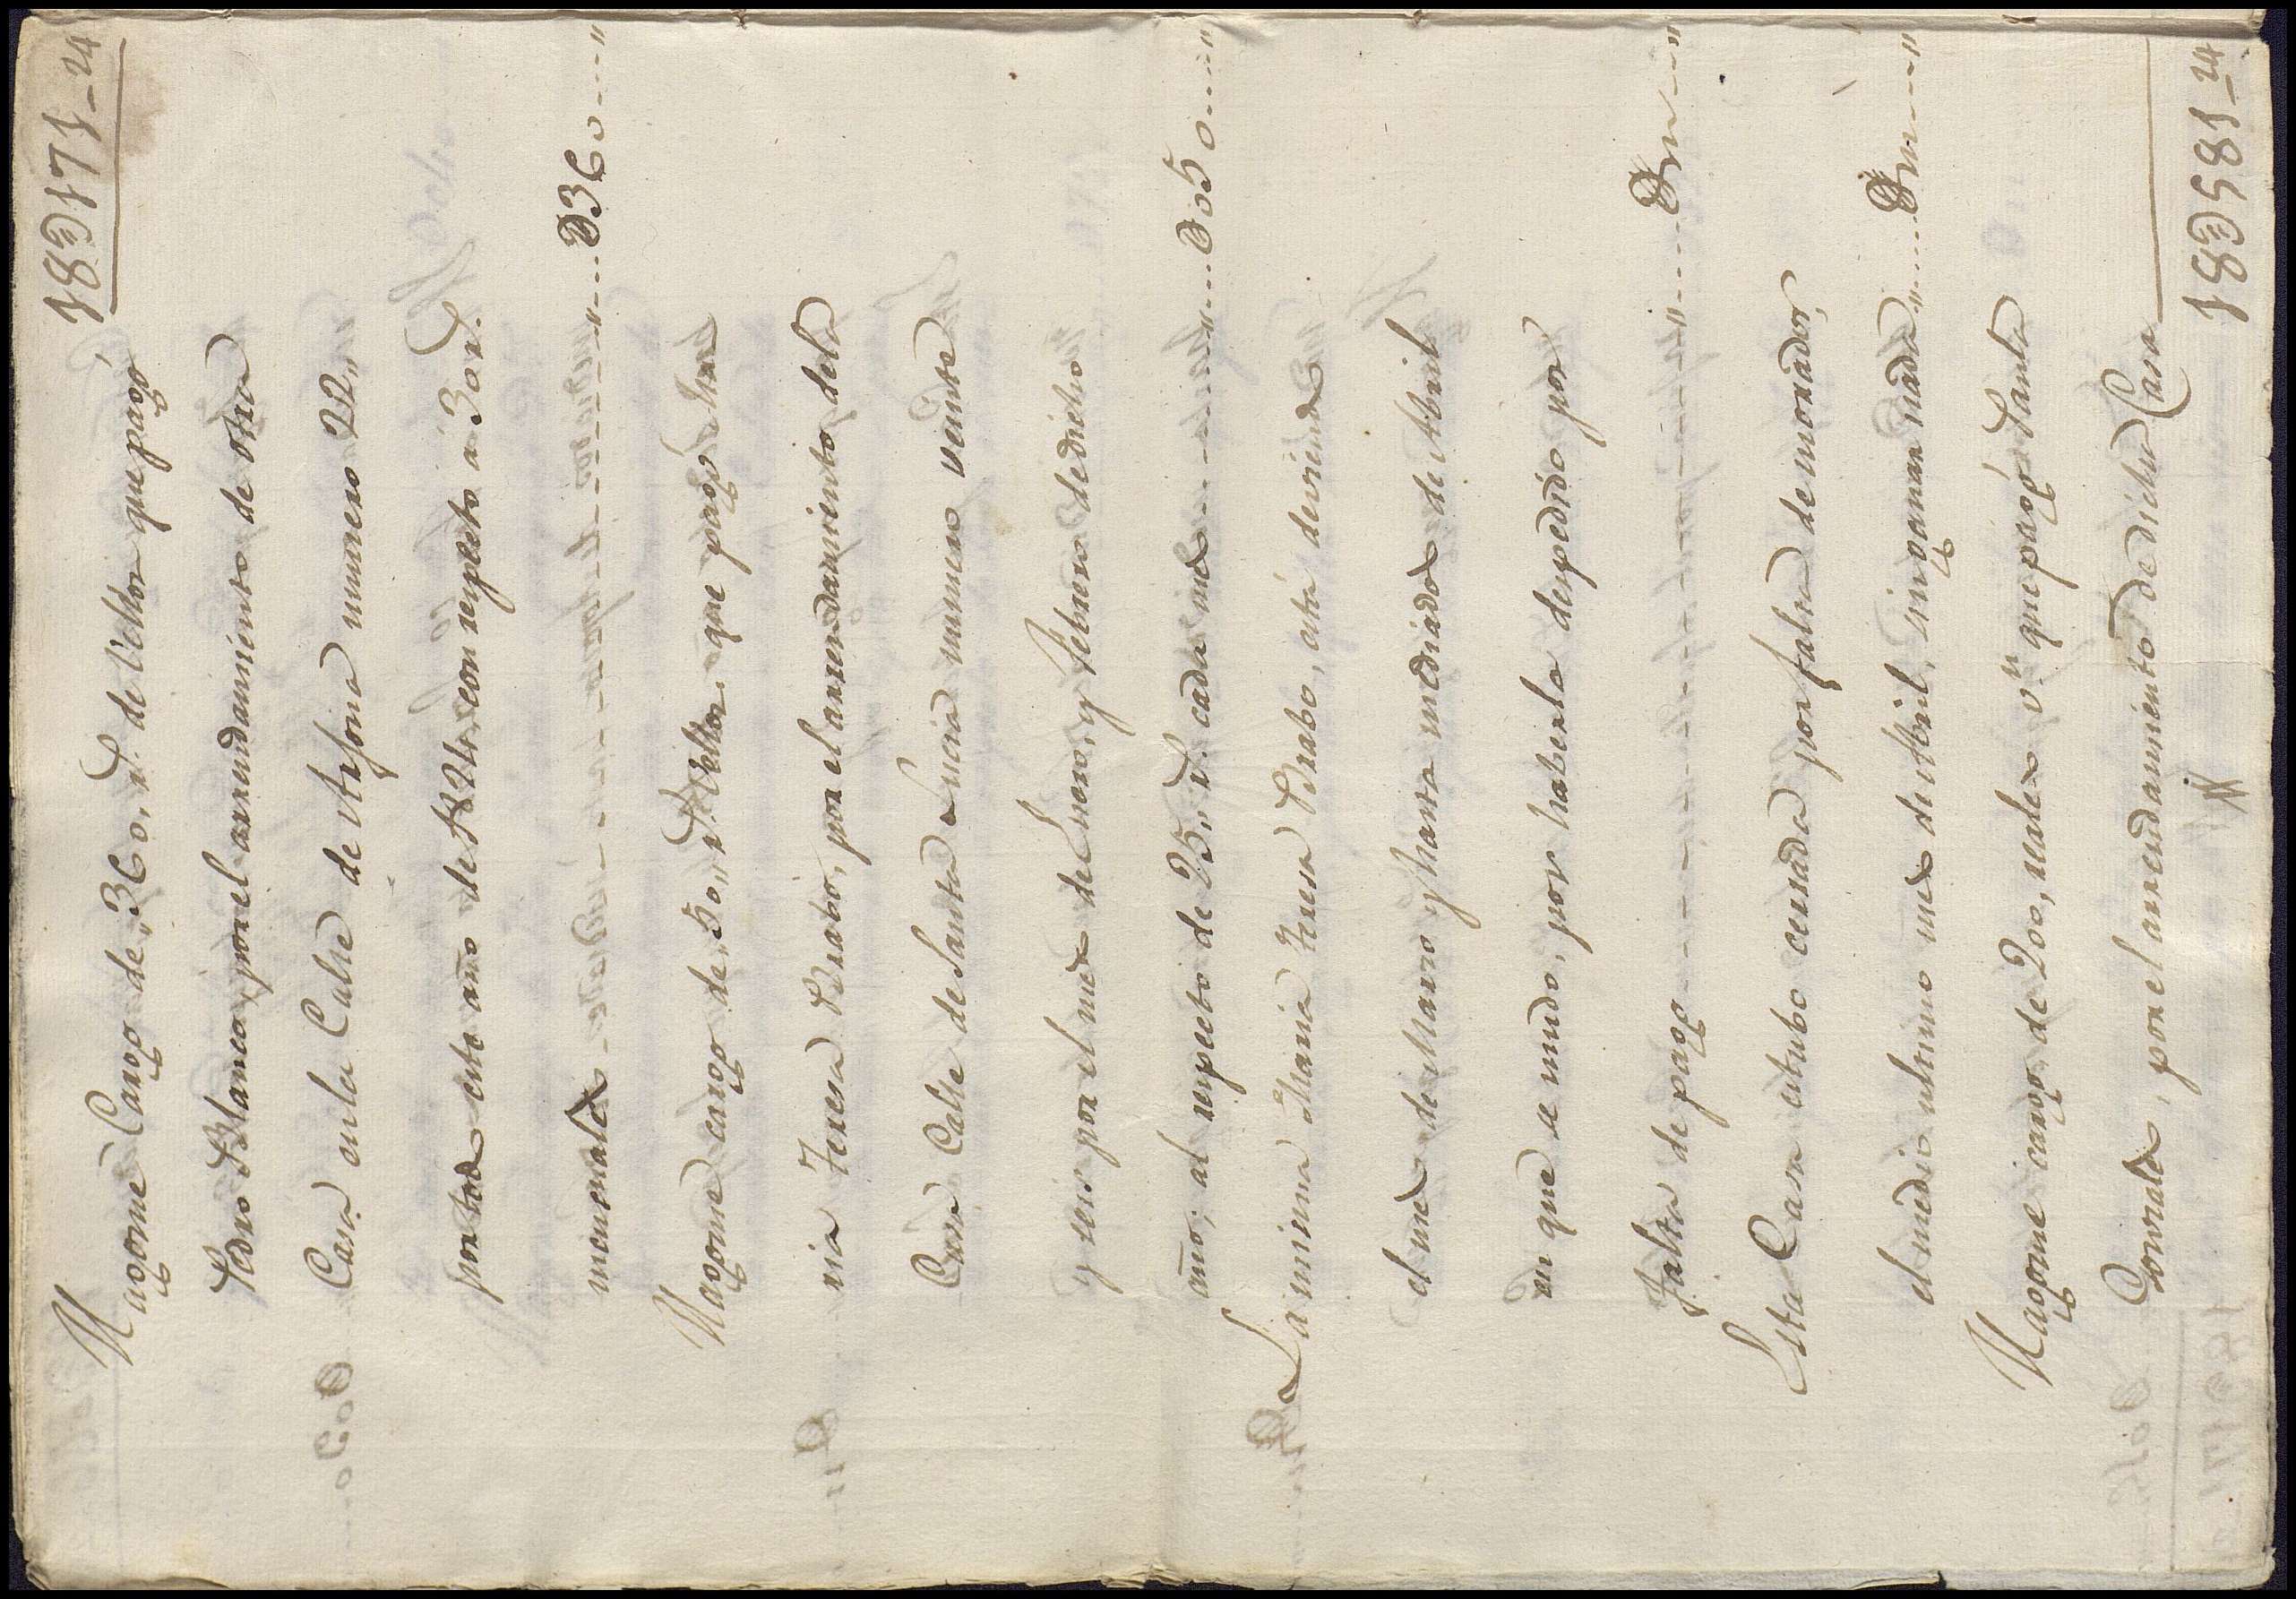 18@171_24
Hagome Cargo de, 360, rs. de Vellon que pagó
Pedro Blanco, por el arrendamiento de otra
Casa en la Calle de Arjona numero 22,,
por todo este año de 1824, con respecto a 30 rs.
mensuales - - - - - - - - ,,....@360....,,
Hagome cargo de,, 50,, rs. Vellon. que pagó Ma
ria Teresa Brabo, por el arrendamiento dela
Casa Calle de Santa Lucia numero veinte
y seis por el mes de Enero, y Febrero de dicho
año, al respecto de 25,, rs. cada mes - - - - ,,....@050....,,
La misma Maria Teresa Brabo, está deviendo
el mes de Marzo y hasta mediados de Abril
en que se mudo, por haberla despedido por
falta de pago - - - - - - - - ,,....@....,,
Esta Casa estubo cerrada por falta de morador,
el medio ultimo mes de Abril, sin ganar nada,,....@....,,
Hagome cargo, de 200, reales vn. que pagó Paula
Gonzales, por el arrendamiento de dicha Casa
18@581_24